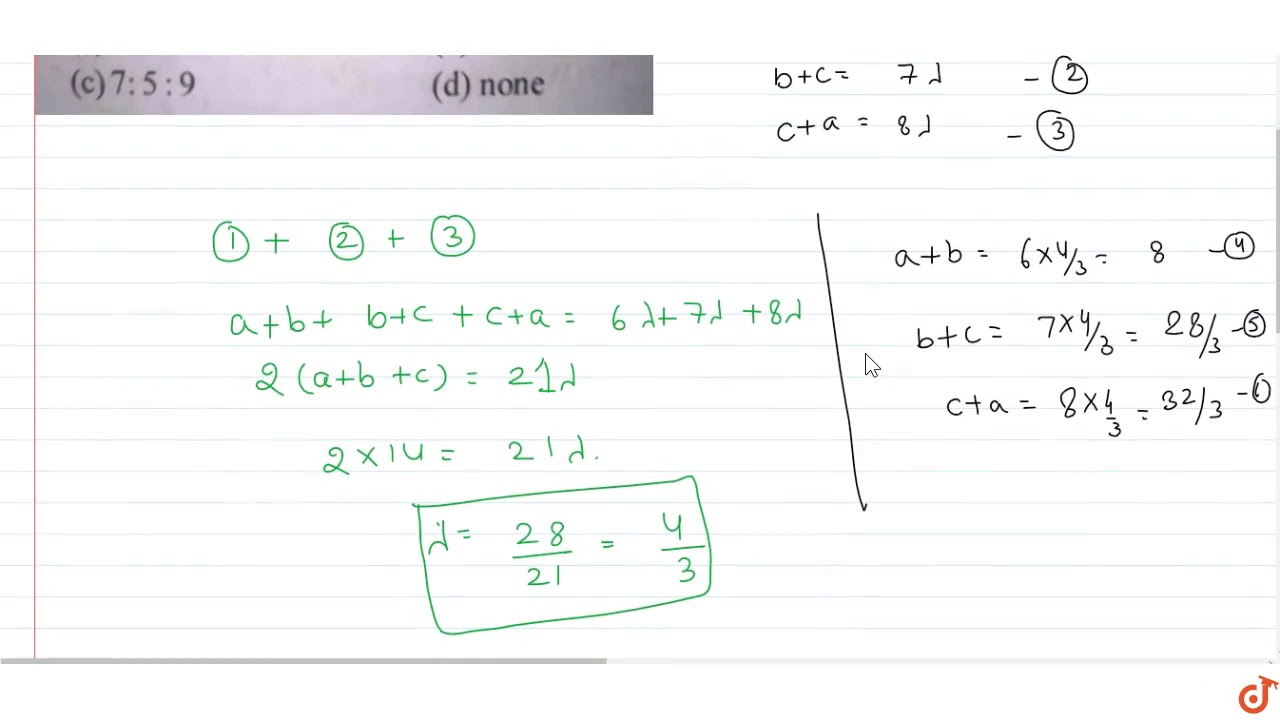 (c) 7 : 5 : 9 (d) none
b+c = 7λ - ②
c+a = 8λ - ③
① + ② + ③
a+b+ b+c + c+a = 6λ+7λ+8λ
2 (a+b+c) = 21λ
2×14 = 21λ.
λ = 28/21 = 4/3
a+b = 6×4/3 = 8 -④
b+c = 7×4/3 = 28/3 -⑤
c+a = 8×4/3 = 32/3